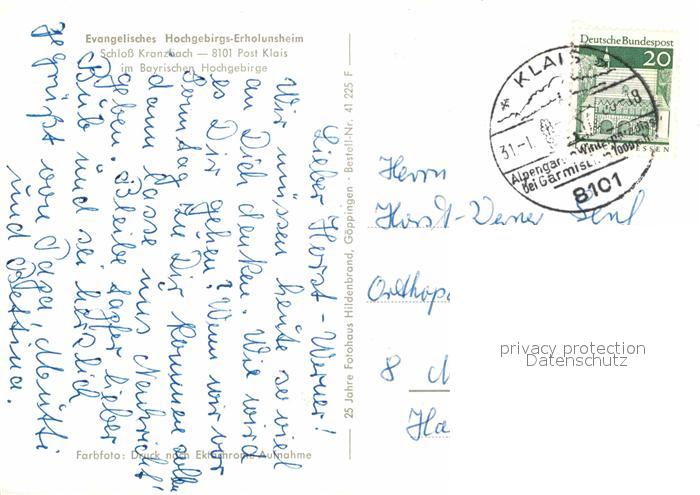 Evangelisches Hochgebirgs-Erholunsheim
Schloß Kranzbach — 8101 Post Klais
im Bayrischen Hochgebirge
Lieber Horst-Werner!
Wir müssen heute so viel
an Dich denken. Wie wird
es Dir gehen? Wenn wir vor
Sonntag zu Dir kommen sollen
dann lasse uns Nachricht
geben. Bleibe tapfer lieber
Bub und sei herzlich
gegrüßt von Papa, Mutti
und Bettina.
Farbfoto: Druck nach Ektachrome-Aufnahme
25 Jahre Fotohaus Hildenbrand, Göppingen · Bestell-Nr. 41 225 F
Deutsche Bundespost
20
ESSEN
KLAIS
31.-1.
-18
Alpengar
bei Garmisch
8101
Herrn
Horst-Werner
Orthop
8
Ha
privacy protection
Datenschutz